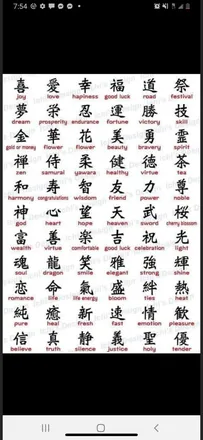 7:54
喜 愛 幸 福 道 祭
joy love hapiness good luck road festival
夢 栄 忍 運 勝 技
dream prosperity endurance fortune victory skill
金 華 花 美 勇 霊
gold or money flower flower beauty bravery spirit
禅 侍 柔 健 徳 茶
zen samurai yawara healthy virtue tea
和 寿 智 友 力 尊
harmony congratulations wisdom friend power noble
神 心 望 天 武 桜
god heart hope heaven sword cherry blossom
富 善 楽 吉 祝 光
wealth virtue comfortable good luck celebration light
魂 龍 笑 雅 強 輝
soul dragon smile elegant strong shine
恋 命 氣 盛 絆 熱
romance life life energy bloom ties heat
純 癒 新 速 情 歓
pure heal fresh fast emotion pleasure
信 真 静 義 聖 優
believe truth silence justice holy tender